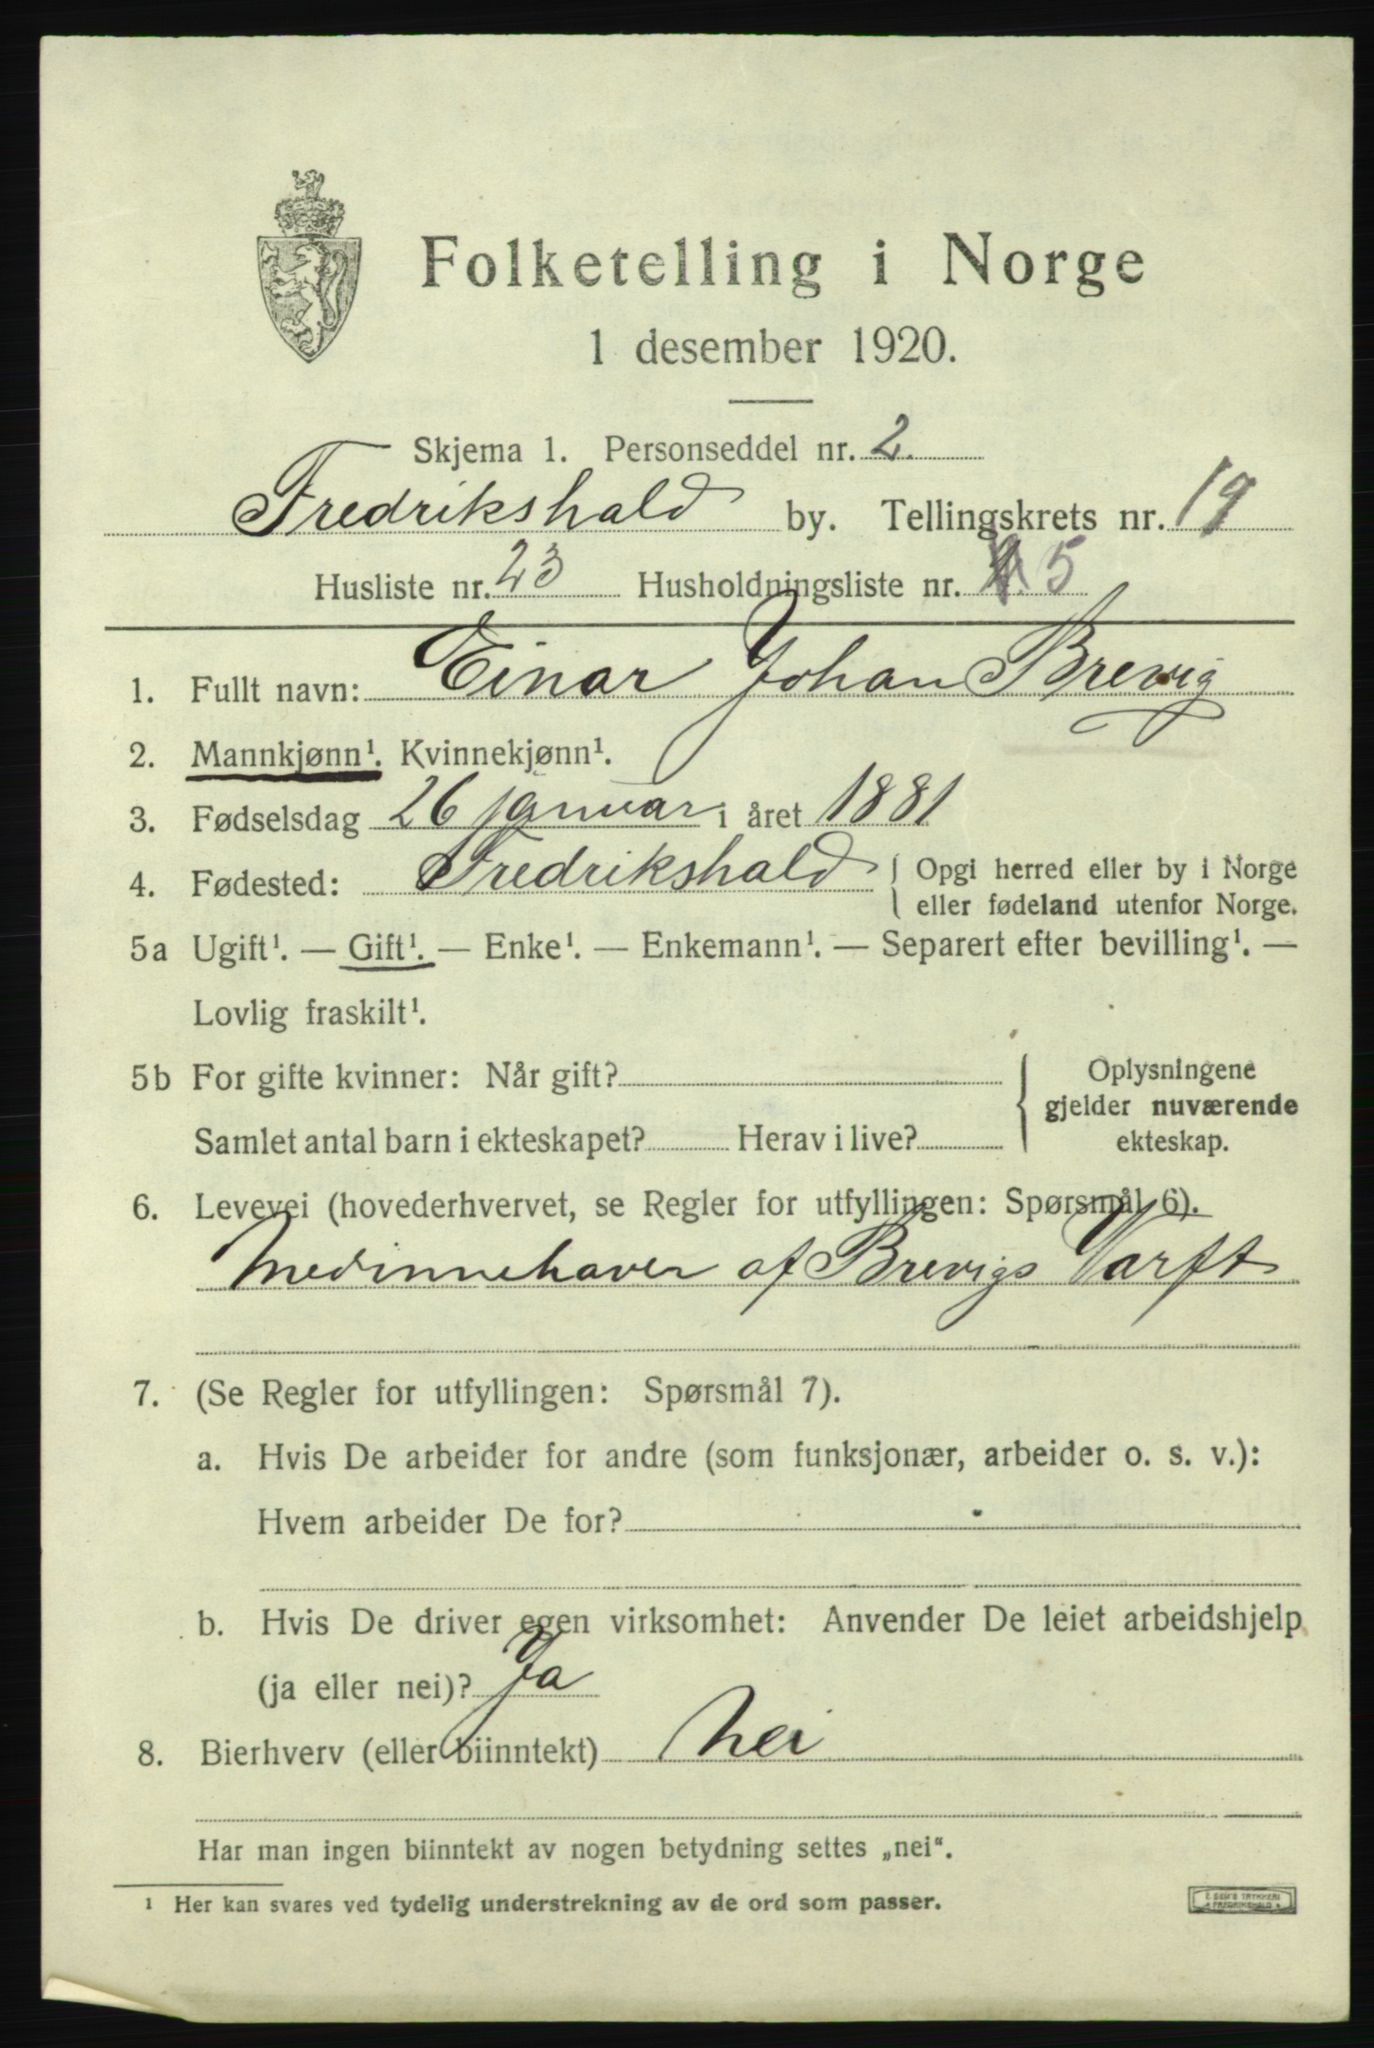 Folketelling i Norge
1 desember 1920.
Skjema 1. Personseddel nr. 2.
Fredrikshald by. Tellingskrets nr. 19
Husliste nr. 23 Husholdningsliste nr. 5
1. Fullt navn: Einar Johan Brevig
2. Mannkjønn¹. Kvinnekjønn¹.
3. Fødselsdag 26 januar i året 1881
4. Fødested: Fredrikshald { Opgi herred eller by i Norge
eller fødeland utenfor Norge.
5a Ugift¹. — Gift¹. — Enke¹. — Enkemann¹. — Separert efter bevilling¹. —
Lovlig fraskilt¹.
5b For gifte kvinner: Når gift? { Oplysningene
gjelder nuværende
Samlet antal barn i ekteskapet? Herav i live? ekteskap.
6. Levevei (hovederhvervet, se Regler for utfyllingen: Spørsmål 6).
Medinnehaver af Brevigs Varft
7. (Se Regler for utfyllingen: Spørsmål 7).
a. Hvis De arbeider for andre (som funksjonær, arbeider o. s. v.):
Hvem arbeider De for?
b. Hvis De driver egen virksomhet: Anvender De leiet arbeidshjelp
(ja eller nei)? Ja
8. Bierhverv (eller biinntekt) Nei
Har man ingen biinntekt av nogen betydning settes „nei“.
¹ Her kan svares ved tydelig understrekning av de ord som passer.
TRYKKERI
FREDRIKSHALD